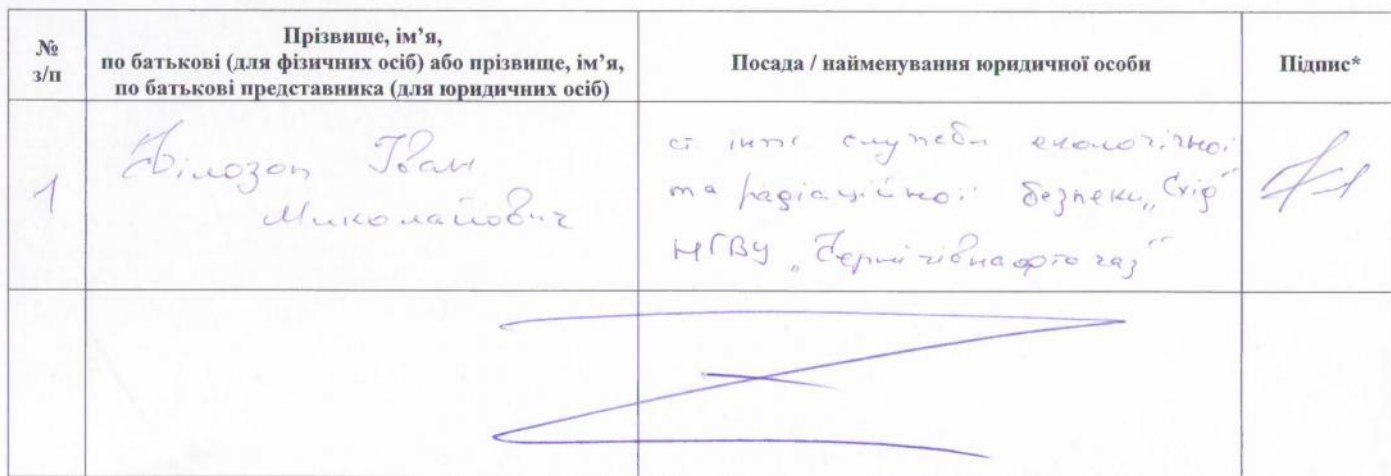 № з/п
Прізвище, ім’я,
по батькові (для фізичних осіб) або прізвище, ім’я,
по батькові представника (для юридичних осіб)
Посада / найменування юридичної особи
Підпис*
1
Білозоп Іван
Миколайович
ст інж служби екологічної
та радіаційної безпеки „Схід“
НГВУ „Чернігівнафтогаз“